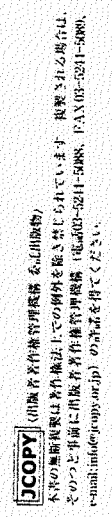 JCOPY 〈出版者著作権管理機構 委託出版物〉
本書の無断複製は著作権法上での例外を除き禁じられています。複製される場合は、
そのつど事前に出版者著作権管理機構（電話03-5244-5088、FAX03-5244-5089、
e-mail:info@jcopy.or.jp）の許諾を得てください。